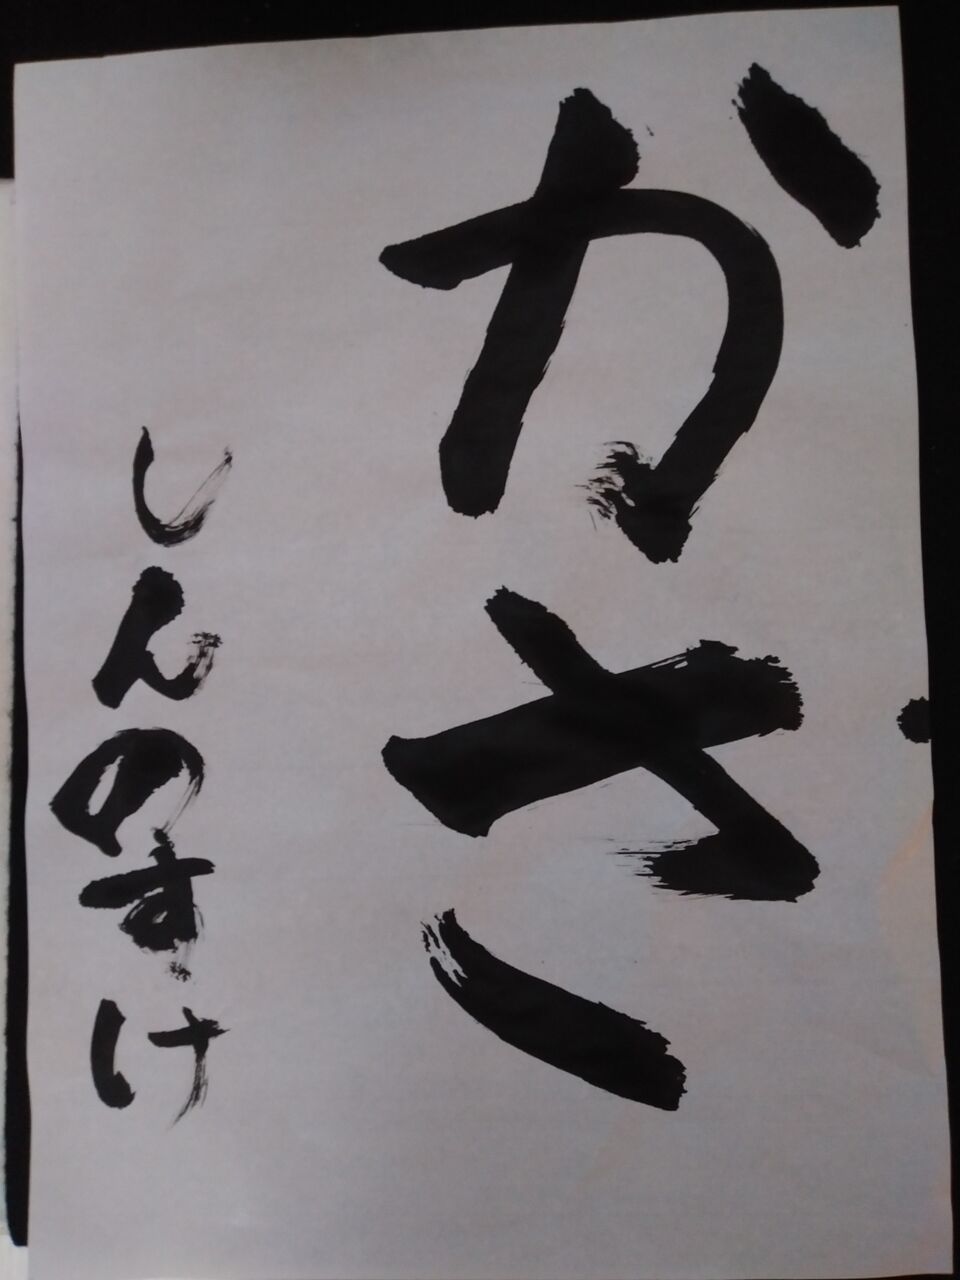 かさ
しんのすけ